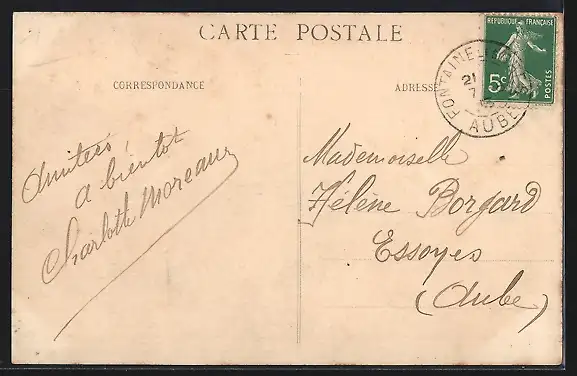 CARTE POSTALE
CORRESPONDANCE
Amitiés,
a bientot
Charlotte Moreaux
ADRESSE
REPUBLIQUE FRANÇAISE
5c
POSTES
21
7
AUBE
Mademoiselle
Hélène Borgard
Essoyes
(Aube)